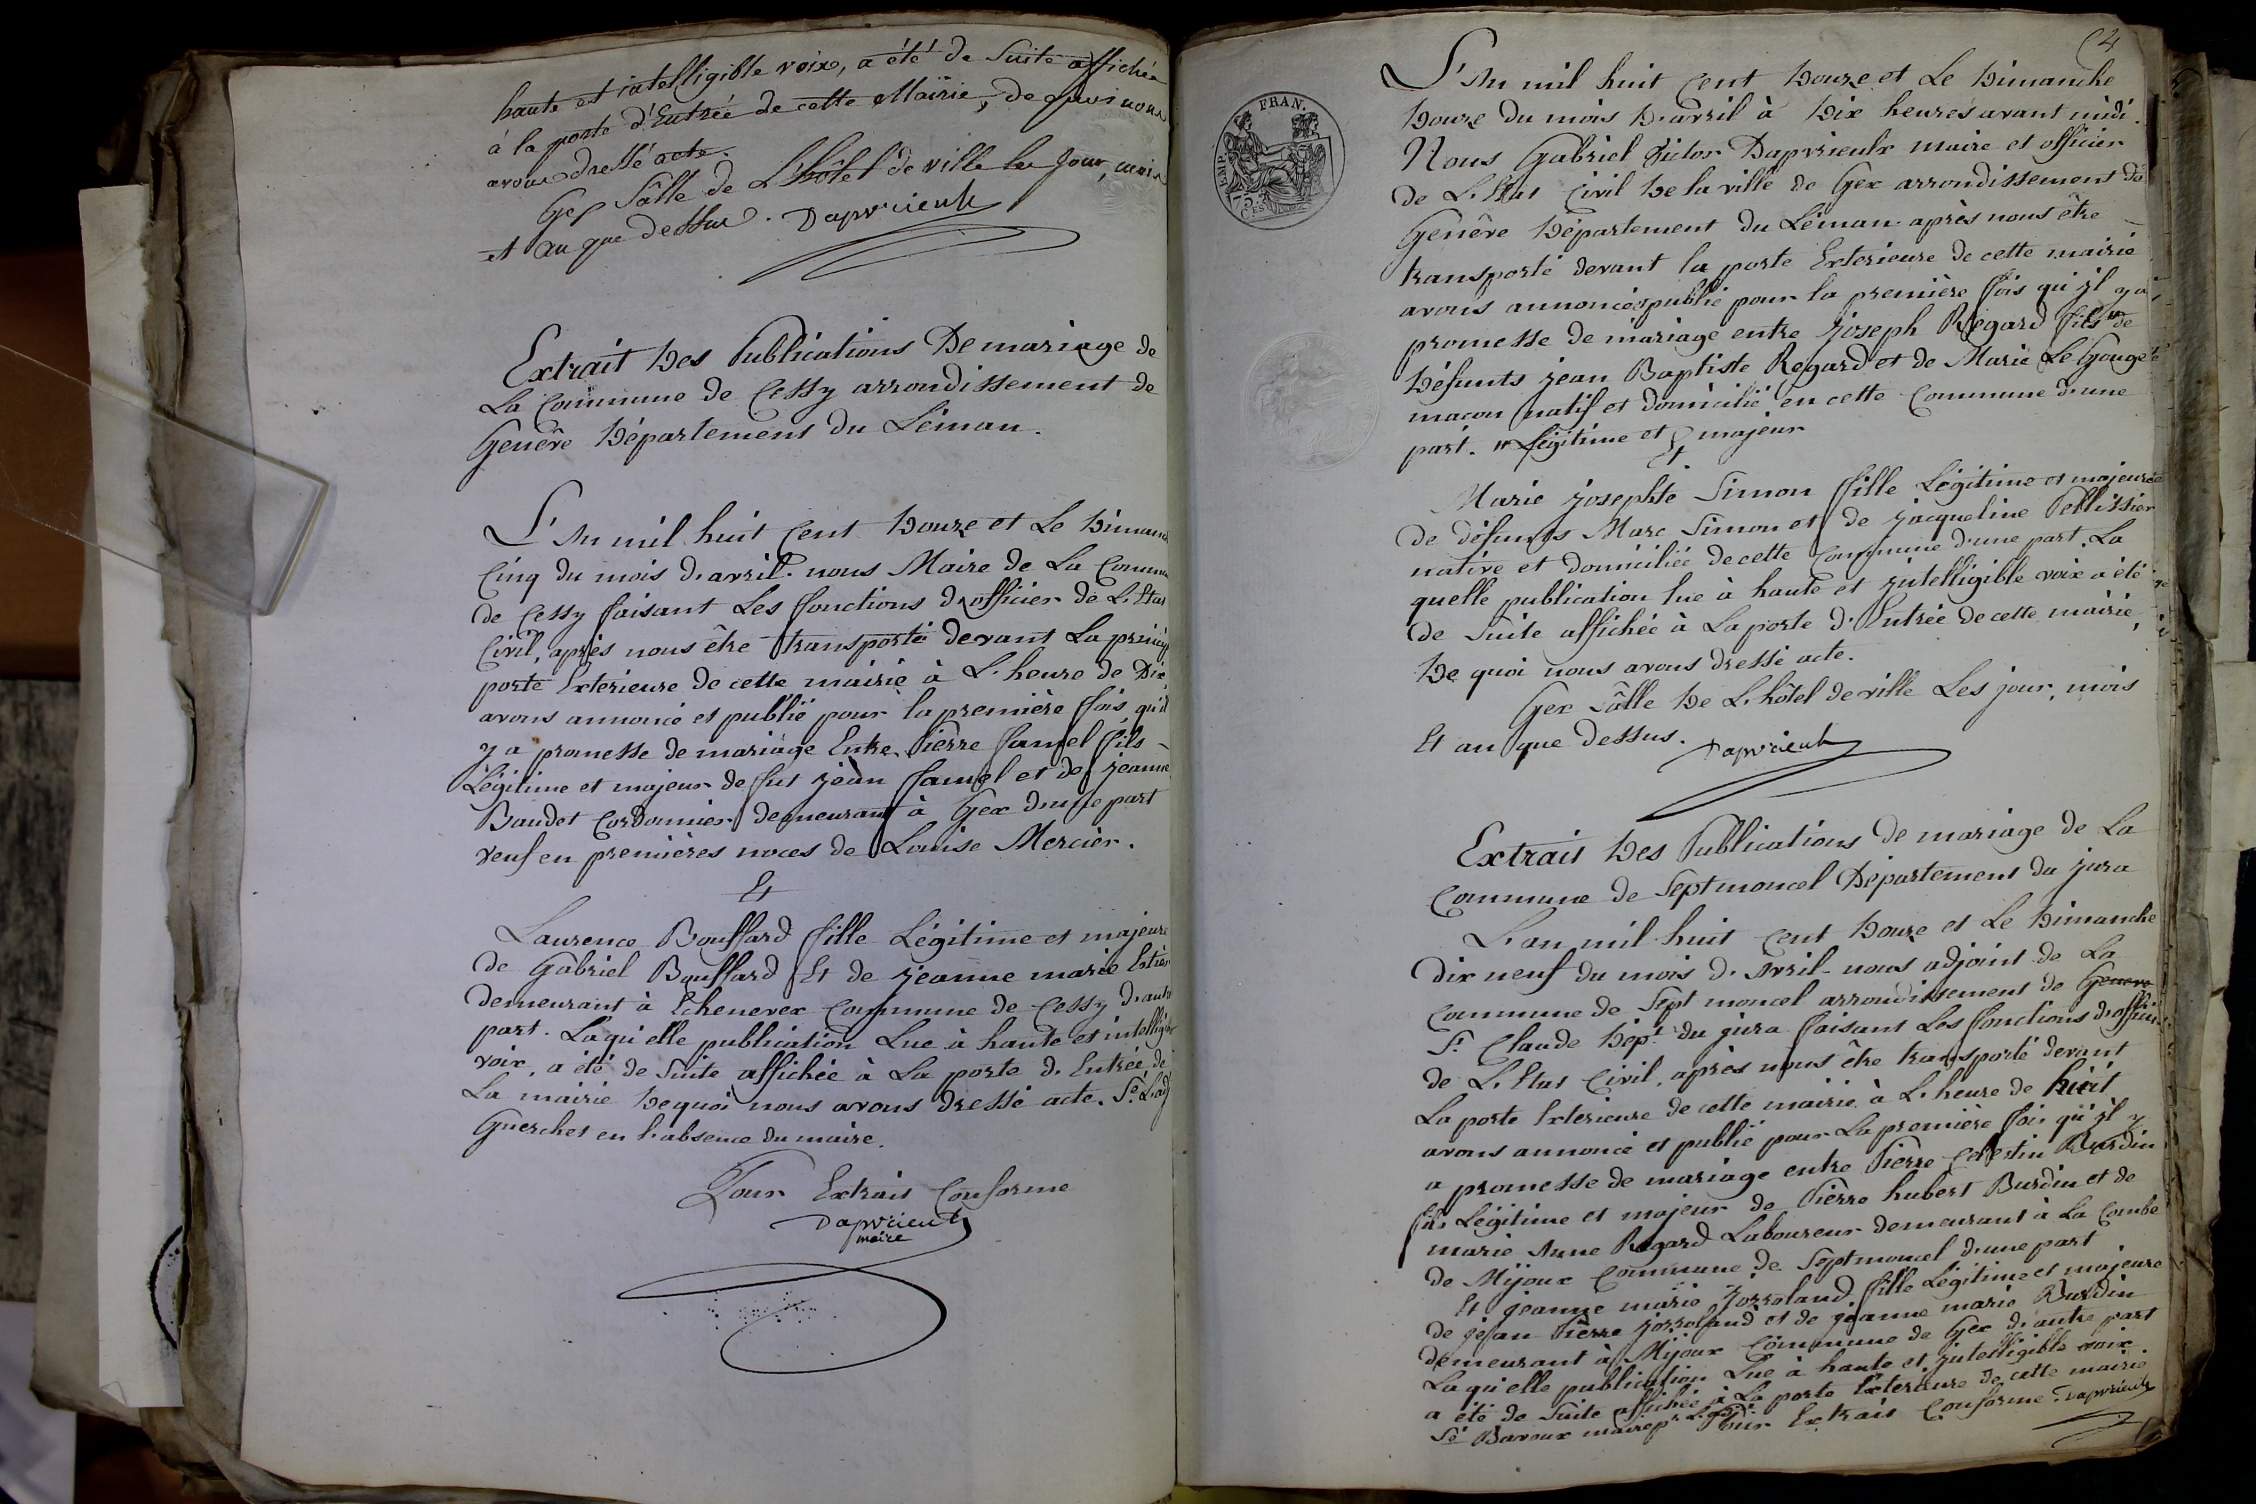 haute et intelligible voix, a été de Suite affichée
à la porte d'Entrée de cette Mairie, de quoi nous
avons dressé acte.
Gex Sâlle de L'hôtel de ville les Jour, mois
et an que dessus. Dapvrieulx
Extrait Des Publications De mariage de
La Commune de Cessy arrondissement de
Genêve Département du Léman.
L'An mil huit Cent Douze et Le Dimanc
Cinq du mois d'avril. nous Maire de La Commu
de Cessy faisant Les fonctions d'officier de L'Etat
Civil, après nous être transporté devant La princip
porte Exterieure de cette mairie à L'heure de Dix,
avons annoncé et publié pour la première fois qu'il
y a promesse de mariage Entre Pierre famel fils
Légitime et majeur de fut jean famel et de jeanne
Baudet Cordonnier demeurant à Gex d'une part
veuf en premières noces de Louise Mercier.
Et
Laurence Bouffard fille Légitime et majeure
de Gabriel Bouffard Et de jeanne marie
demeurant à Echenevex Commune de Cessy d'autre
part. Laqu'elle publication Lue à haute et intelligi
voix, a été de Suite affichée à La porte d'Entrée de
La mairie De quoi nous avons dressé acte. Sé. L'adj
Guerchet en l'absence du maire.
Pour Extrait Conforme
Dapvrieulx
maire
4
EMP. FRAN.
75.
L'An mil huit Cent Douze et Le Dimanche
Douze du mois D'avril à Dix heures avant midi.
Nous Gabriel Victor Dapvrieulx maire et officier
de L'Etat Civil De la ville de Gex arrondissement de
Genêve Département du Léman après nous être
transporté devant la porte Exterieure de cette mairie
avons annoncé & publié pour la première fois qu'il y a
promesse de mariage entre joseph Regard fils # de
Défunts jean Baptiste Regard et de Marie Le Gouge
maçon natif et domicilié en cette Commune d'une
part. # Légitime et majeur
Et
Marie josephte Simon fille Légitime et majeure
de défunts Marc Simon et de jacqueline Pellissier
native et domiciliée de cette Commune d'une part. La
quelle publication lue à haute et intelligible voix a été
de Suite affichée à La porte d'Entrée de cette mairie,
De quoi nous avons dressé acte.
Gex Sâlle De L'hôtel de ville Les jour, mois
Et an que dessus. Dapvrieulx
Extrait Des Publications de mariage de La
Commune de Septmoncel Département du jura
L'an mil huit Cent Douze et Le Dimanche
Dix neuf du mois d'Avril nous adjoint de La
Commune de Sept moncel arrondissement de Geneve
St. Claude Dépt. du jura faisant Les fonctions d'officier
de L'Etat Civil, après nous être transporté devant
La porte Exterieure de cette mairie à L'heure de huit
avons annoncé et publié pour La première fois qu'il y
a promesse de mariage entre Pierre Celestin Burdin
fils Légitime et majeur de Pierre hubert Burdin et de
marie Anne Regard Laboureur demeurant à La Combe
de Mijoux Commune de Septmoncel d'une part
Et jeanne marie jozroland fille Légitime et majeure
de jean Pierre jozroland et de jeanne marie Burdin
demeurant à Mijoux Commune de Gex d'autre part
Laqu'elle publication Lue à haute et intelligible voix
a été de Suite affichée à La porte Exterieure de cette mairie
Sé Bavoux maire pr. L'adjt. Pour Extrait Conforme. Dapvrieulx